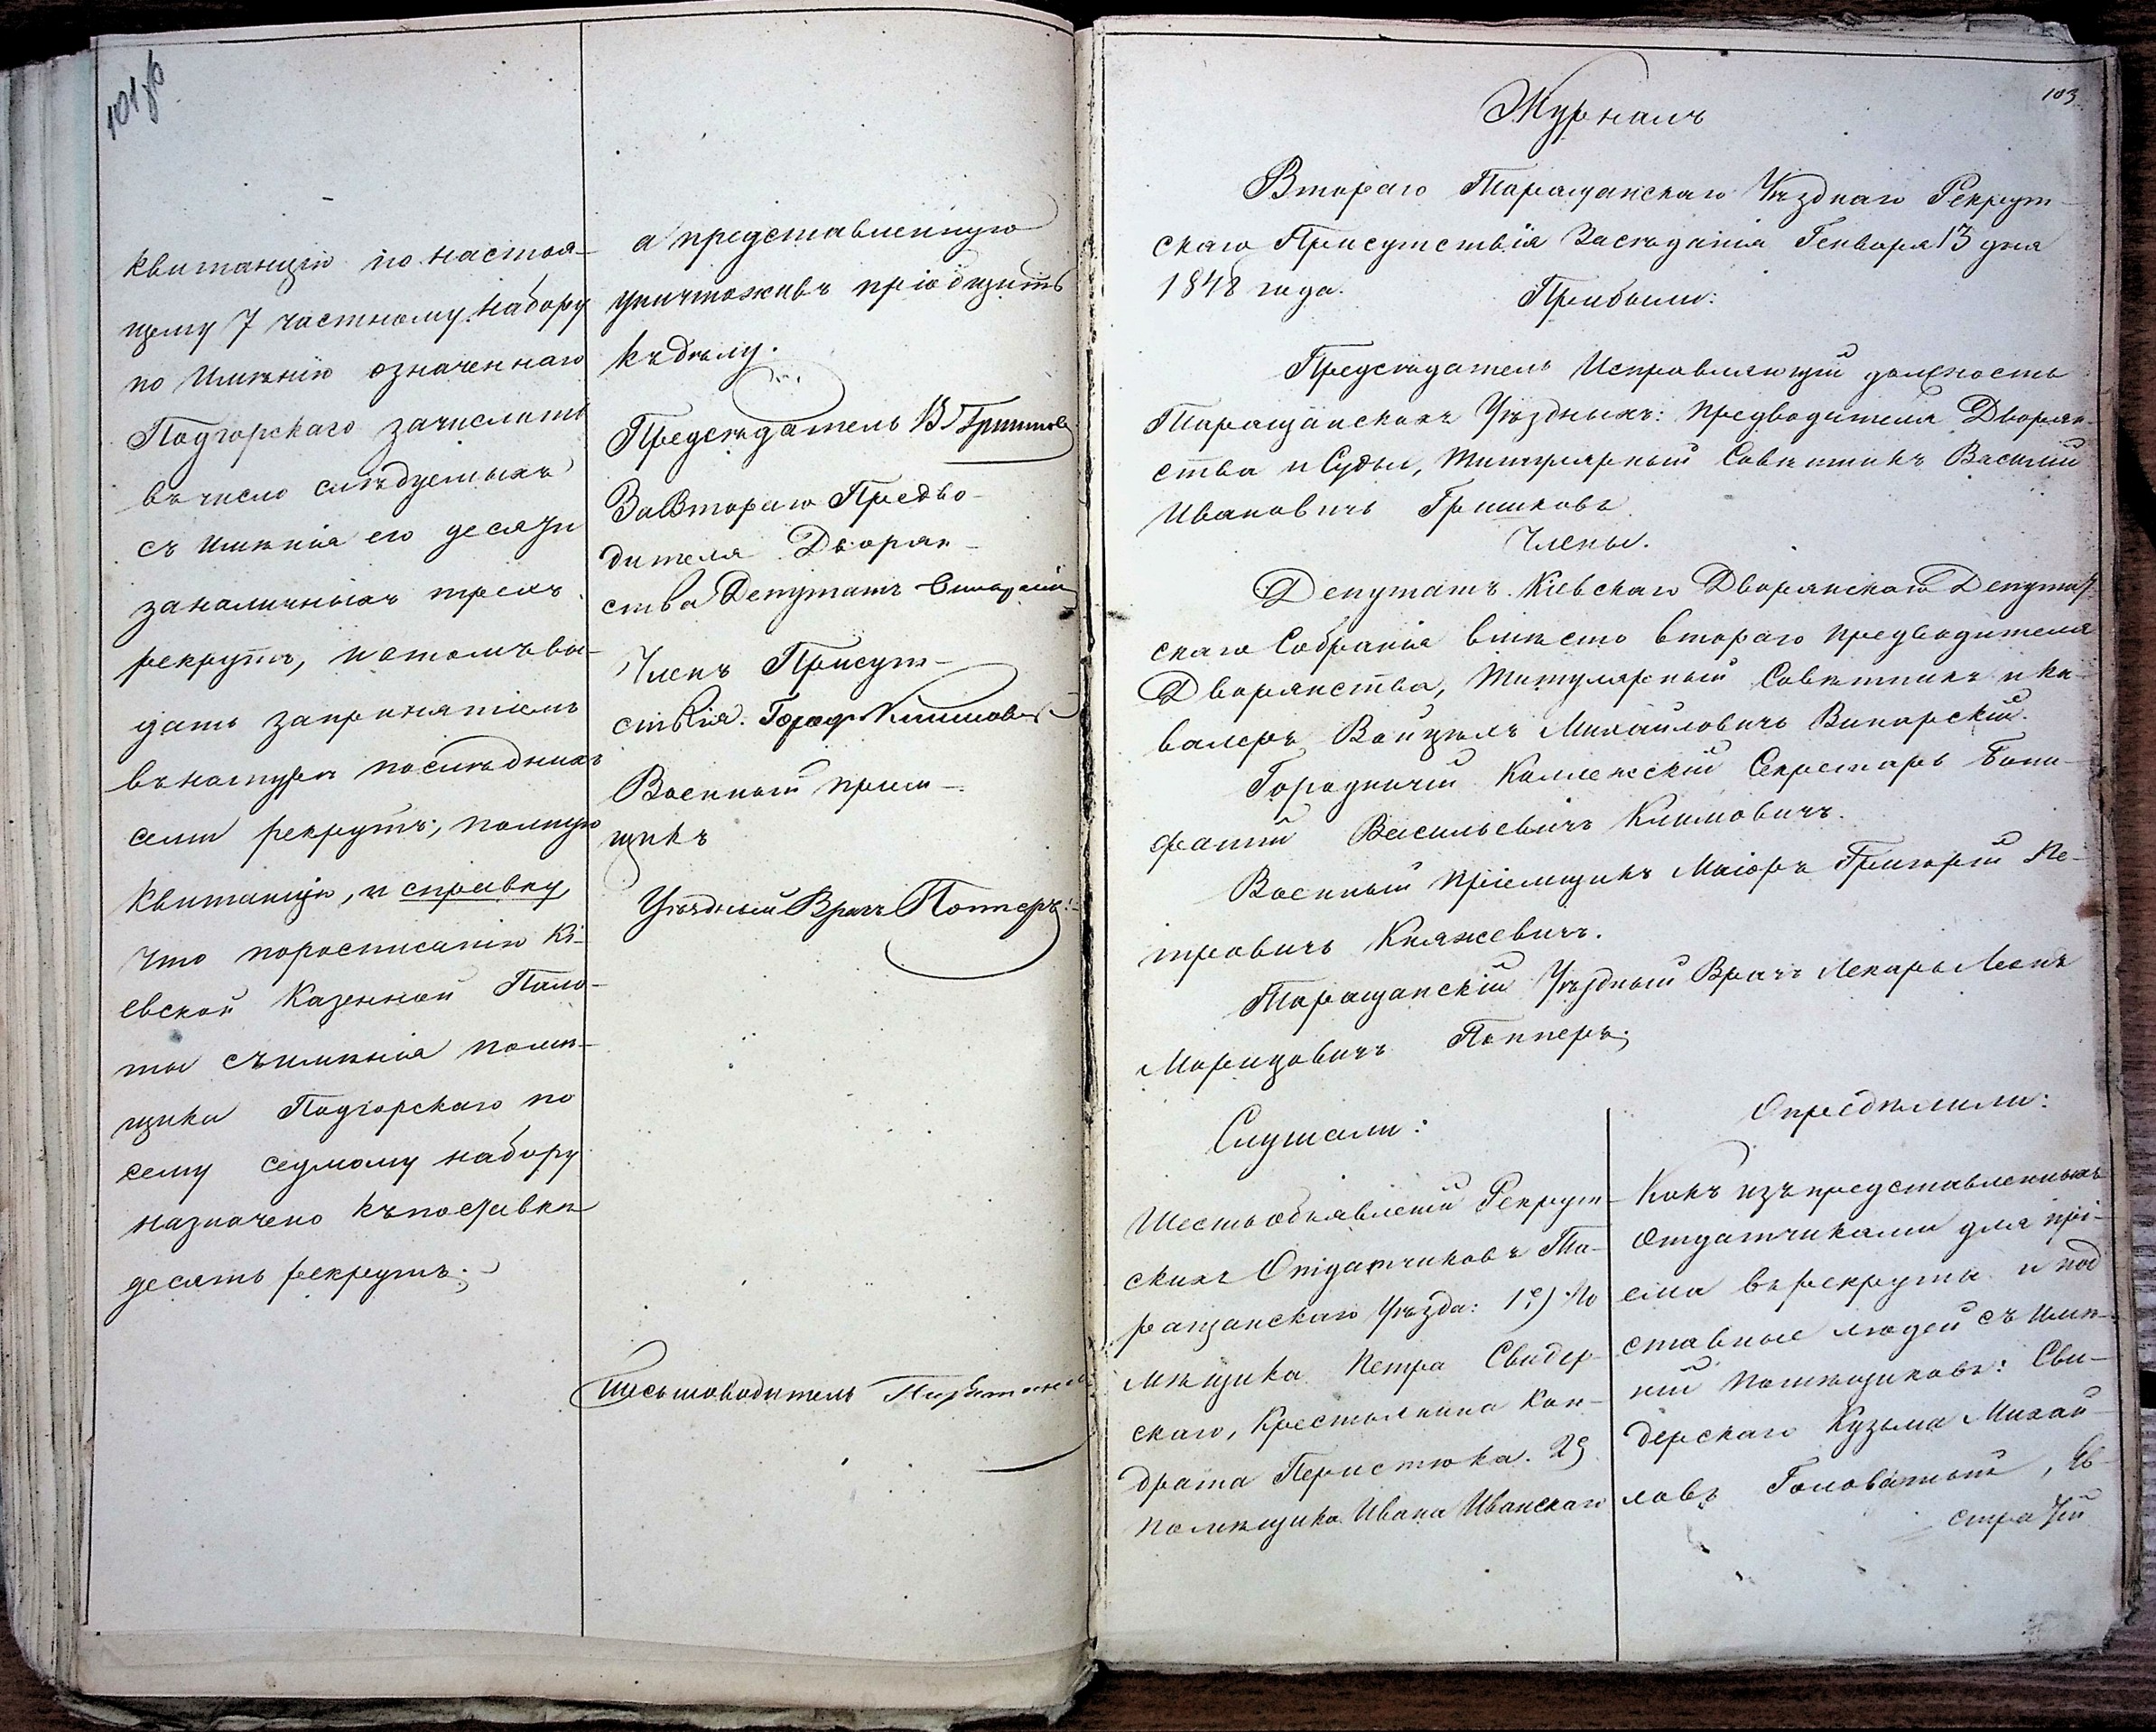 квитанцію по настоя-
щему 7 частному набору
по Имѣнію означеннаго
Подгорскаго зачислить
въ число слѣдуемыхъ
съ имѣнія его десяти
заналичныхъ трехъ
рекрутъ, и потомъ вы-
дать запринятіемъ
въ натурѣ послѣднихъ
семи рекрутъ, полную
квитанцію, и справку,
что поросписанію Кі-
евской Казенной Пала-
ты съ имѣнія помѣ-
щика Подгорскаго по
сему седмому набору
назначено къ поставкѣ
десять рекрутъ;
а представленную
уничтоживъ пріобщить
къ дѣлу.
Предсѣдатель В Гришковъ
За Втораго Предво-
дителя Дворян-
ства Депутатъ
Членъ Присут-
ствія. Город. Климовичъ
Военный пріем-
щикъ
Уѣздный Врачъ Попперъ
Письмоводитель
103
Журналъ
Втораго Таращанскаго Уѣзднаго Рекрут-
скаго Присутствія Засѣданія Генваря 13 дня
1848 года.
Прибыли:
Предсѣдатель Исправляющій должность
Таращанскихъ Уѣздныхъ: предводителя Дворян-
ства и Судьи, Титулярный Совѣтникъ Василій
Ивановичъ Гришковъ.
Члены.
Депутатъ Кіевскаго Дворянскаго Депутат-
скаго Собранія вмѣсто втораго предводителя
Дворянства, Титулярный Совѣтникъ и ка-
валеръ Войцѣхъ Михайловичъ Винарскій.
Городничій Коллежскій Секретарь Бони-
фатій Васильевичъ Климовичъ.
Военный пріемщикъ Маіоръ Григорій Пе-
тровичъ Княжевичъ.
Таращанскій Уѣздный Врачъ Лекарь Леонъ
Морицовичъ Попперъ;
Слушали:
Шесть объявленій Рекрут-
скихъ Отдатчиковъ Та-
ращанскаго Уѣзда: 1е) По
мѣщика Петра Свидер-
скаго, Крестьянина Кон-
драта Перистюка. 2е
помѣщика Ивана Иванскаго
Опредѣлили:
Какъ изъ представленныхъ
Отдатчиками для прі-
ема въ рекруты и под
ставные людей съ имѣ-
ній помѣщиковъ: Сви-
дерскаго Кузьма Михай-
ловъ Головатый, Ев-
стратій